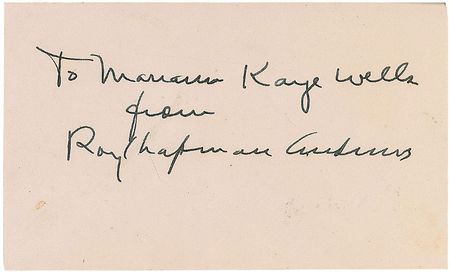 To Mariana Kaye Wells
from
Roy Chapman Andrews